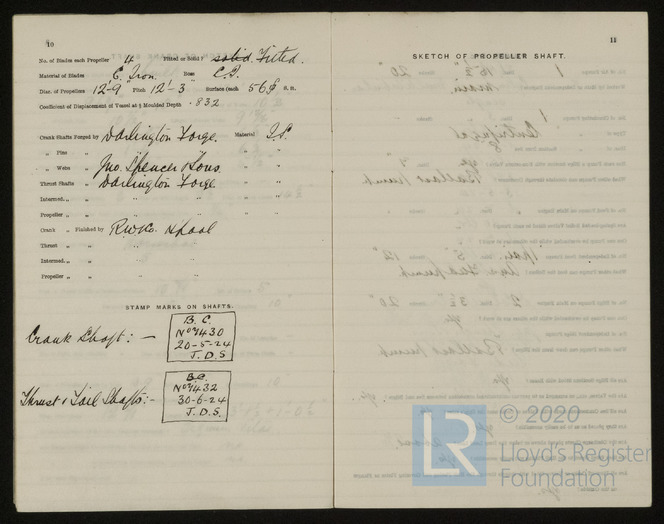 10
No. of Blades each Propeller 4 Fitted or Solid? solid. Fitted.
Material of Blades C. Iron. Boss C.I.
Diar. of Propellers 12'-9 Pitch 12'-3 Surface (each S. ft.
Coefficient of Displacement of Vessel at ¾ Moulded Depth .832
Crank Shafts Forged by Darlington Forge. Material I.S.
„ Pins „ „ „
„ Webs „ Jno. Spencer & Sons. „ „
Thrust Shafts „ Darlington Forge. „ „
Intermed. „ „ „ „
Propeller „ „ „ „
Crank „ Finished by R.W. & Co. Hpool
Thrust „ „ „
Intermed. „ „ „
Propeller „ „ „
STAMP MARKS ON SHAFTS.
Crank Shaft: —
B.C.
No 7430
20-5-24
J.D.S
Thrust & Tail Shafts: —
B.C.
No 7432
30-6-24
J.D.S.
11
SKETCH OF PROPELLER SHAFT.
LR
© 2020
Lloyd's Register
Foundation